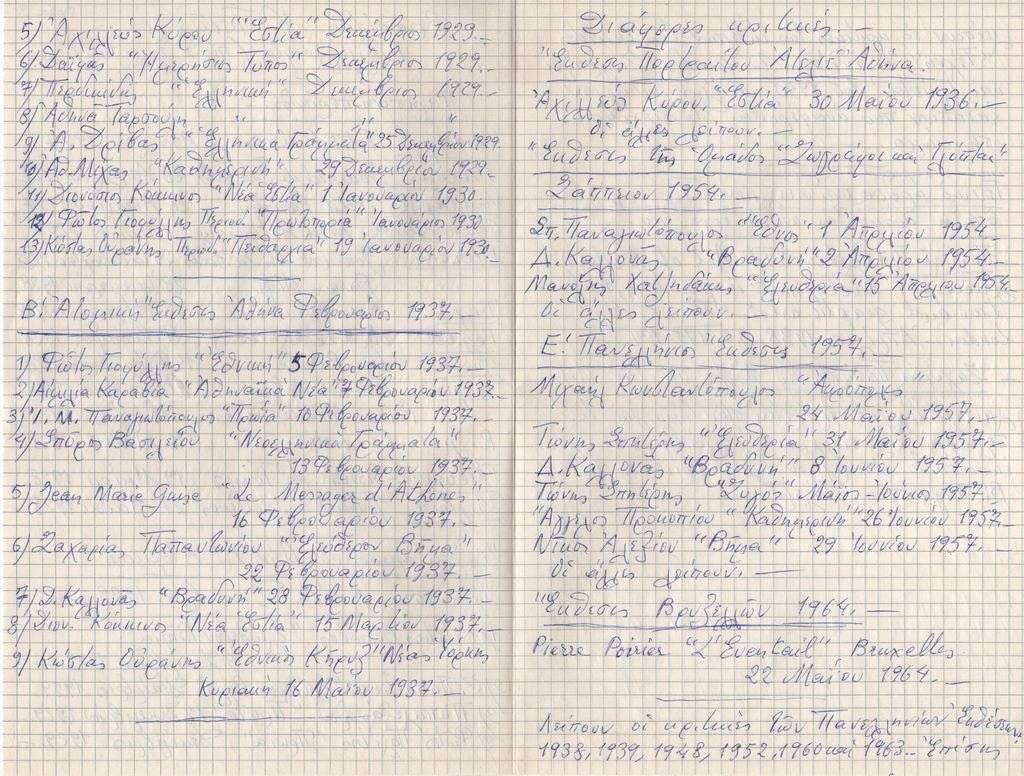 5) Ἀχιλλεύς Κύρου "Ἑστία" Δεκέμβριος 1929.–
6) Δαΐγᾶς "Ἡμερήσιος Τύπος" Δεκέμβριος 1929.–
7) "Ἑλληνική" Δεκέμβριος 1929.–
8) Ἀθηνᾶ Ταρσούλη " " "
9) Ἀ. Δρίβας "Ἑλληνικά Γράμματα" 25 Δεκεμβρίου 1929
10) Ἀθ. Μίχας "Καθημερινή" 29 Δεκεμβρίου 1929–
11) Διονύσιος Κόκκινος "Νέα Ἑστία" 1 Ἰανουαρίου 1930.
12) Φῶτος Γιοφύλλης Περιοδ. "Πρωτοπορία" Ἰανουάριος 1930
13) Κώστας Οὐράνης Περιοδ. "Πειθαρχία" 19 Ἰανουαρίου 1930.–
Β! Ἀτομική Ἔκθεσις Ἀθήνα Φεβρουάριος 1937.–
1) Φῶτος Γιοφύλλης "Ἐθνική" 5 Φεβρουαρίου 1937.–
2) Αἰμιλία Καραβία "Ἀθηναϊκά Νέα" 7 Φεβρουαρίου 1937.–
3) Ἰ. Μ. Παναγιωτόπουλος "Πρωΐα" 10 Φεβρουαρίου 1937.–
4) Σπύρος Βασιλείου "Νεοελληνικά Γράμματα"
13 Φεβρουαρίου 1937.–
5) Jean Marie "Le Messager d'Athènes"
16 Φεβρουαρίου 1937.–
6) Ζαχαρίας Παπαντωνίου "Ἐλεύθερον Βῆμα"
22 Φεβρουαρίου 1937.–
7) Δ. Καλλονᾶς "Βραδυνή" 28 Φεβρουαρίου 1937.–
8) Διον. Κόκκινος "Νέα Ἑστία" 15 Μαρτίου 1937.–
9) Κώστας Οὐράνης "Ἐθνικός Κῆρυξ" Νέας Ὑόρκης
Κυριακή 16 Μαΐου 1937.–
Διάφορες κριτικές.–
Ἔκθεσις Πορτραίτου Ἀτελιέ Ἀθήνα.
Ἀχιλλεύς Κύρου. "Ἑστία" 30 Μαΐου 1936.–
Οἱ ἄλλες λείπουν.–
"Ἔκθεσις" τῆς Ὁμάδος "Ζωγράφοι καί Γλύπται"
Ζάππειον 1954.–
Σπ. Παναγιωτόπουλος "Ἔθνος" 1 Ἀπριλίου 1954–
Δ. Καλλονᾶς "Βραδυνή" 2 Ἀπριλίου 1954–
Μανόλης Χατζηδάκης "Ἐλευθερία" 15 Ἀπριλίου 1954–
Οἱ ἄλλες λείπουν.–
Ε! Πανελλήνιος Ἔκθεσις 1957.–
Μιχαήλ Κωνσταντόπουλος "Ἀκρόπολις"
24 Μαΐου 1957.–
Γιάννης Σπητέρης "Ἐλευθερία" 31 Μαΐου 1957.–
Δ. Καλλονᾶς "Βραδυνή" 8 Ἰουνίου 1957.–
Γιάννης Σπητέρης "Ζυγός" Μάϊος–Ἰούνιος 1957–
Ἄγγελος Προκοπίου "Καθημερινή" 26 Ἰουνίου 1957–
Νῖκος Ἀλεξίου "Βῆμα" 29 Ἰουνίου 1957.–
Οἱ ἄλλες λείπουν.–
Ἔκθεσις Βρυξελλῶν 1964.–
Pierre Poirier "L'Éventail" Bruxelles
22 Μαΐου 1964.–
Λείπουν οἱ κριτικές τῶν Πανελληνίων Ἐκθέσεων,
1938, 1939, 1948, 1952, 1960 καί 1963.– Ἐπίσης